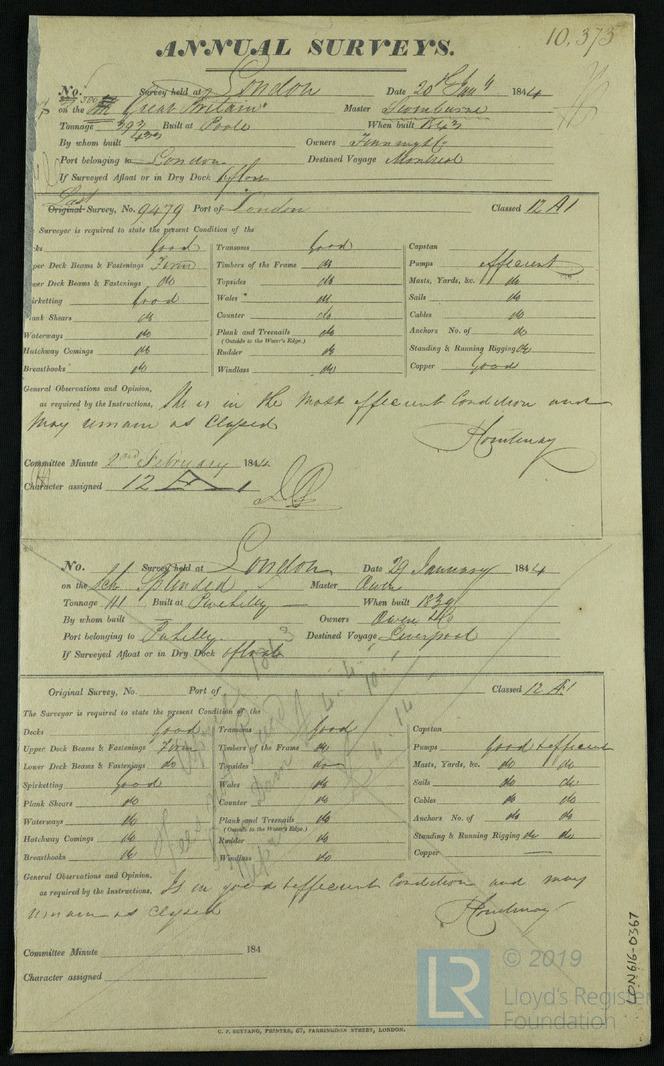 10,373
ANNUAL SURVEYS.
No. Survey held at London Date 20th Jany 1844
on the "Great Britain" Master
Tonnage 393 Built at Poole When built 1843
433
By whom built Owners
Port belonging to London Destined Voyage Montreal
If Surveyed Afloat or in Dry Dock afloat
Last
Original Survey, No. 9479 Port of London Classed 12 A1
Surveyor is required to state the present Condition of the
ks Good Transoms Good Capstan
per Deck Beams & Fastenings Firm Timbers of the Frame do Pumps efficient
wer Deck Beams & Fastenings do Topsides do Masts, Yards, &c. do
irketting Good Wales do Sails do
lank Shears do Counter do Cables do
Waterways do Plank and Treenails do Anchors No. of do
(Outside to the Water's Edge.)
Hatchway Comings do Rudder do Standing & Running Rigging do
Breasthooks do Windlass do Copper Good
General Observations and Opinion,
as required by the Instructions, She is in the most efficient Condition and
may remain as Classed
Committee Minute 2nd February 1844
Character assigned 12 A 1
No. Survey held at London Date 29 January 1844
on the Sch Splended Master Owen
Tonnage 111 Built at Pwehelly When built 1839
By whom built Owners Owen & Co
Port belonging to Pwhelly Destined Voyage Liverpool
If Surveyed Afloat or in Dry Dock afloat
Original Survey, No. Port of Classed 12 A1
The Surveyor is required to state the present Condition of the
Decks Good Transoms Good Capstan
Upper Deck Beams & Fastenings Firm Timbers of the Frame do Pumps Good & efficient
Lower Deck Beams & Fastenings do Topsides do Masts, Yards, &c. do do
Spirketting Good Wales do Sails do do
Plank Shears do Counter do Cables do do
Waterways do Plank and Treenails do Anchors No. of do do
(Outside to the Water's Edge.)
Hatchway Comings do Rudder do Standing & Running Rigging do do
Breasthooks do Windlass do Copper
General Observations and Opinion,
as required by the Instructions, Is in good & efficient Condition and may
remain as Classed
Committee Minute 184
Character assigned
C. F. SEYFANG, PRINTER, 67, FARRINGDON STREET, LONDON.
LON616-0367
© 2019
LR
Lloyd's Register
Foundation